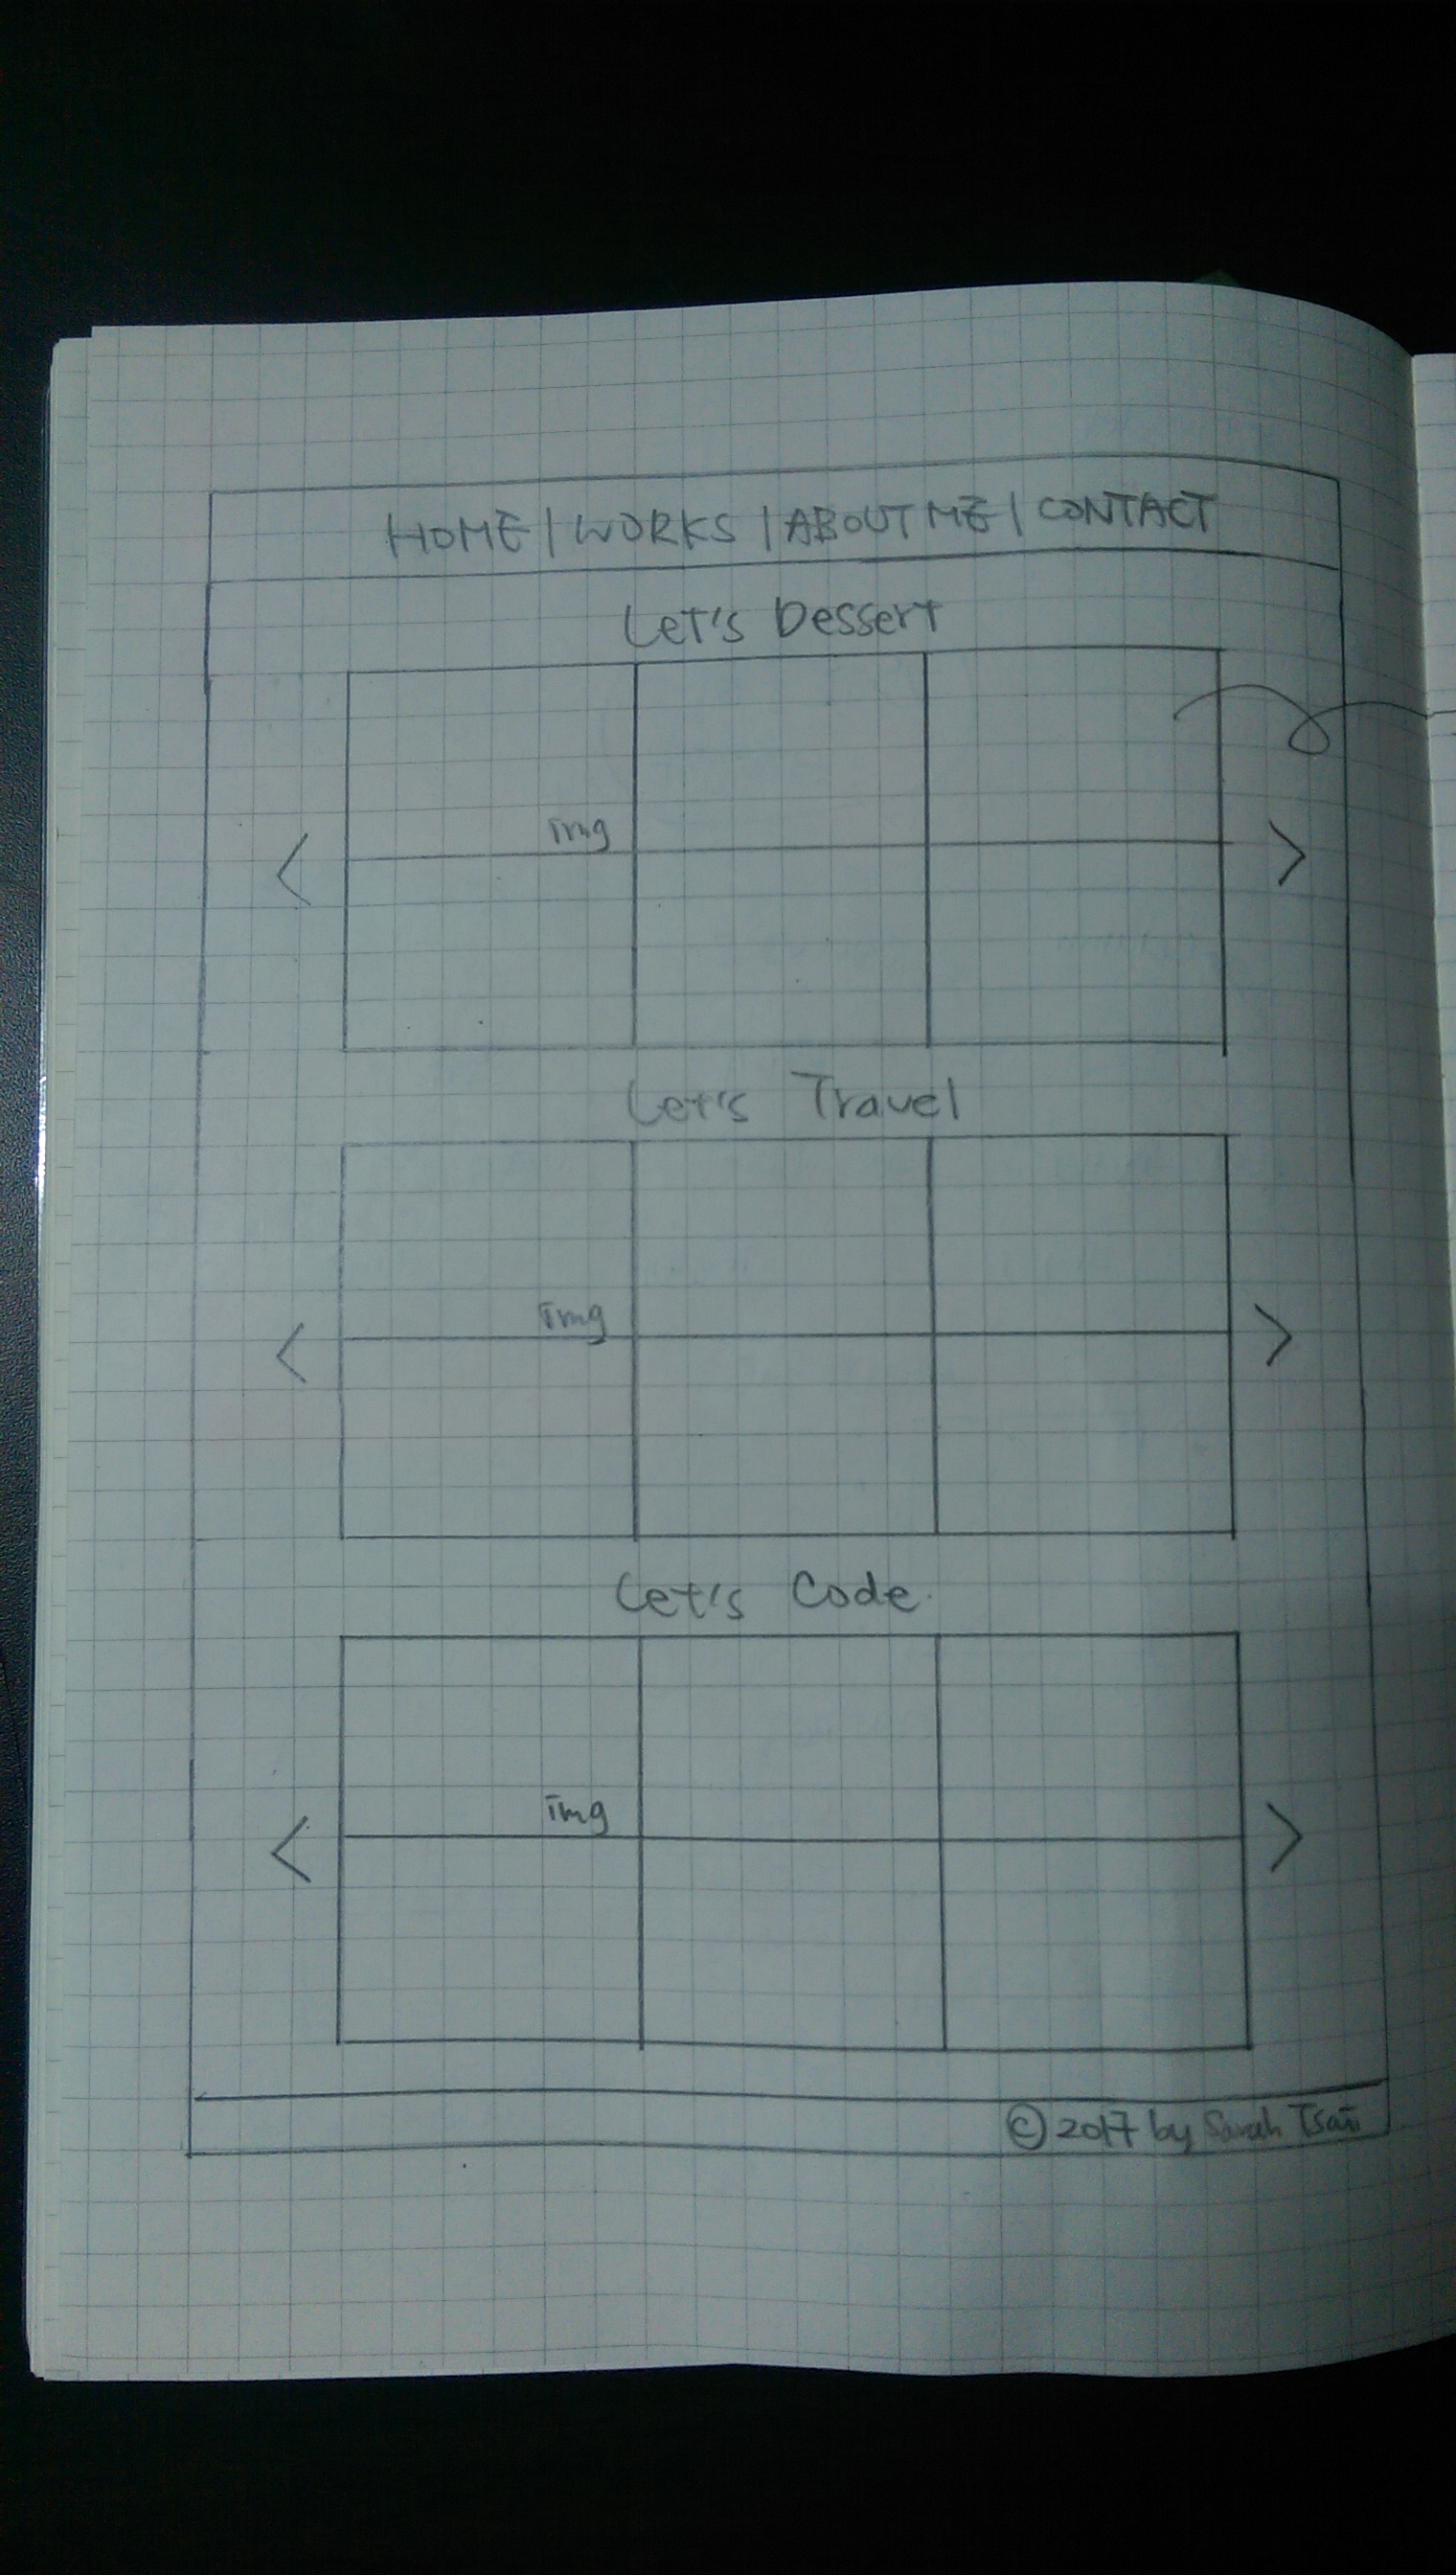 HOME | WORKS | ABOUT ME | CONTACT
Let's Dessert
img
<
>
Let's Travel
img
<
>
Let's Code
img
<
>
© 2017 by Sarah Tsai